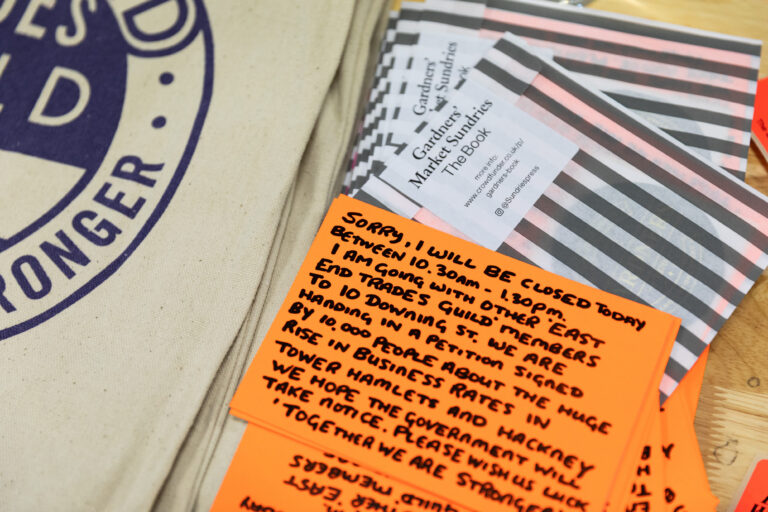 DES
LD
D
PONGER
Gardners'
Market Sundries
The Book
more info:
www.crowdfunder.co.uk/p/
gardners-book
@Sundriespress
Gardners'
Sundries
Book
SORRY, I WILL BE CLOSED TODAY
BETWEEN 10.30AM - 1.30PM.
I AM GOING WITH OTHER EAST
END TRADES GUILD MEMBERS
TO 10 DOWNING ST. WE ARE
HANDING IN A PETITION SIGNED
BY 10.000 PEOPLE ABOUT THE HUGE
RISE IN BUSINESS RATES IN
TOWER HAMLETS AND HACKNEY
WE HOPE THE GOVERNMENT WILL
TAKE NOTICE. PLEASE WISH US LUCK
'TOGETHER WE ARE STRONGER